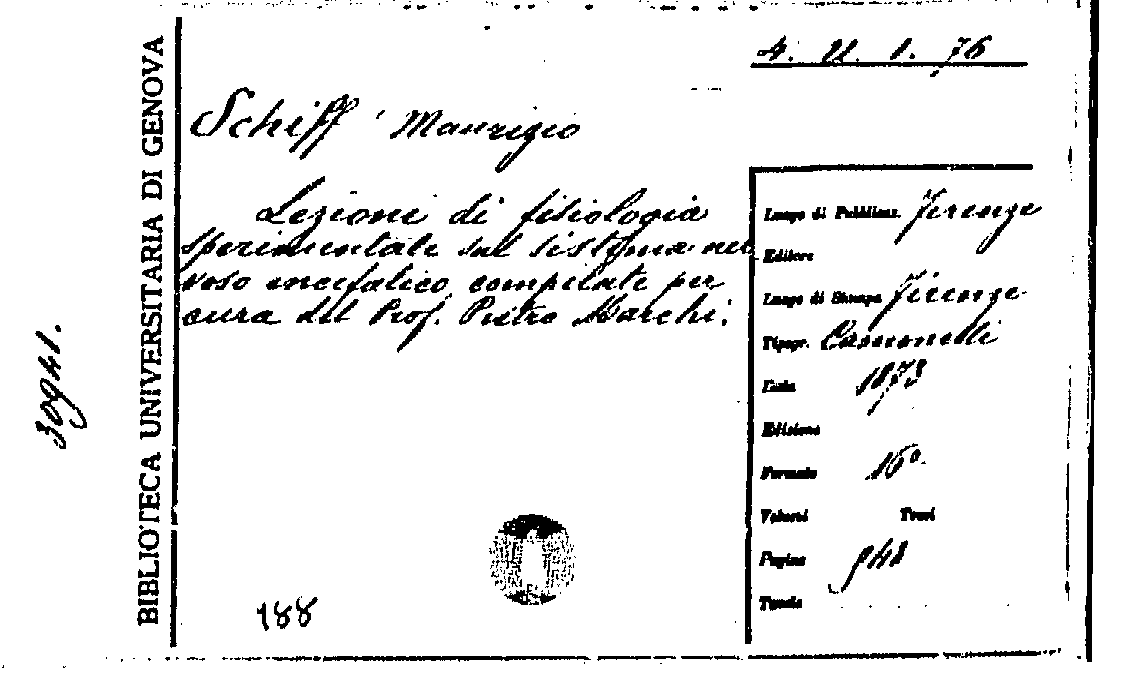 4. U. 1. 76
Schiff Maurizio
Lezioni di fisiologia
sperimentale sul sistema ner
voso encefalico compilate per
cura del Prof. Pietro Marchi.
Luogo di Pubblicaz. Firenze
Editore
Luogo di Stampa Firenze
Tipogr. Cammelli
Data 1873
Edizione
Formato 16°
Volumi Tomi
Pagine 548
Tavole
188
BIBLIOTECA UNIVERSITARIA DI GENOVA
30941.